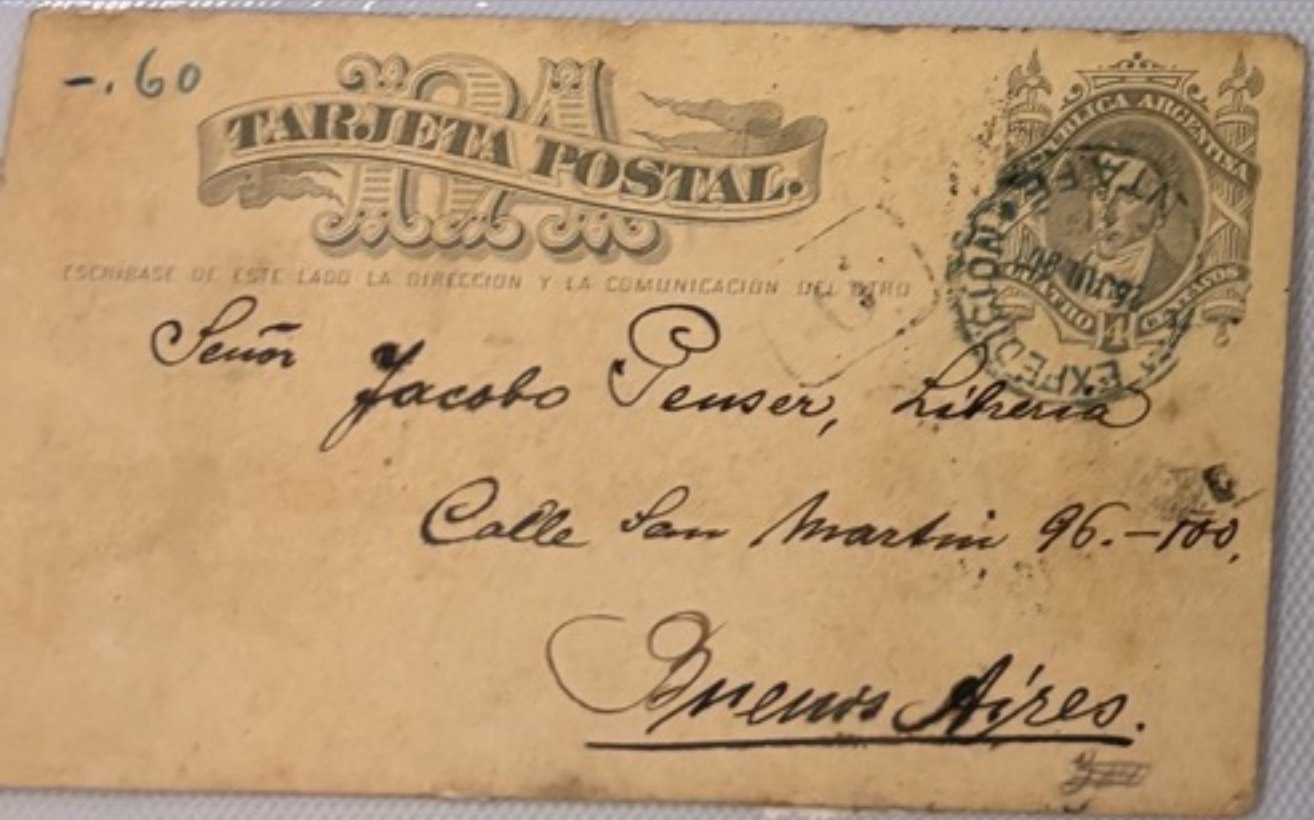 -.60
RA
TARJETA POSTAL.
REPUBLICA ARGENTINA
CUATRO 4 CENTAVOS
EXPEDICION
26 JUL 80
ESCRIBASE DE ESTE LADO LA DIRECCION Y LA COMUNICACION DEL OTRO
Señor
Jacobo Penser, Libreria
Calle San Martin 96.-100,
Buenos Aires.